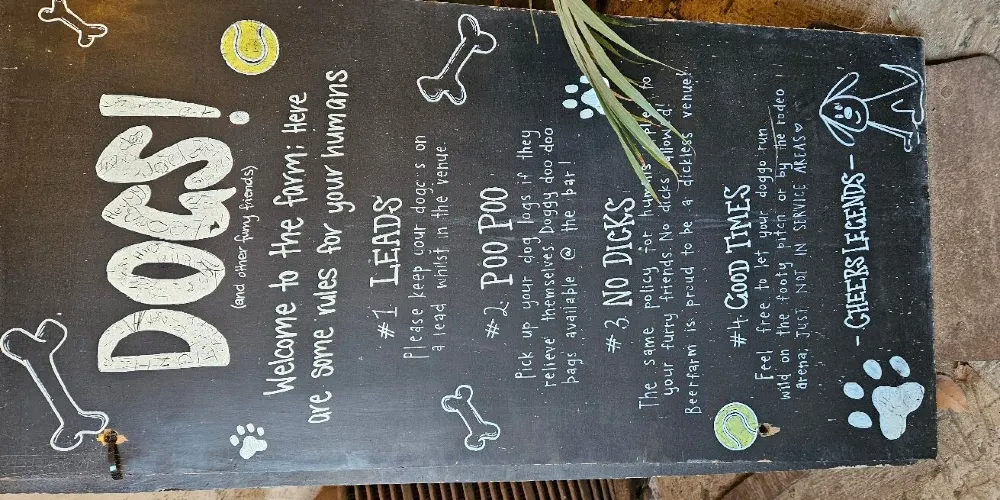 DOGS!
(and other furry friends)
Welcome to the farm; Here
are some rules for your humans
#1 LEADS
Please keep your dog:s on
a lead whilst in the venue.
#2 POO POO
Pick up your dog logs if they
relieve themselves. Doggy doo doo
bags available @ the bar!
#3 NO DICKS
The same policy for to
your furry friends. No dicks
Beerfarm is proud to be a dickless venue!
#4 GOOD TIMES
Feel free to let your doggo run
wild on the footy pitch or by the rodeo
arena, JUST NOT IN SERVICE AREAS♥
- CHEERS LEGENDS -